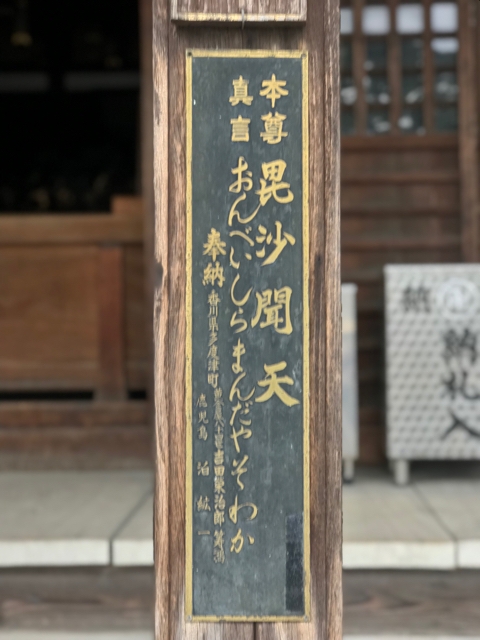 本尊 毘沙聞天
真言 おんべいしらまんだやそわか
奉納 香川県多度津町
吉田栄治郎
鹿児島 泊紘一
納
納札入